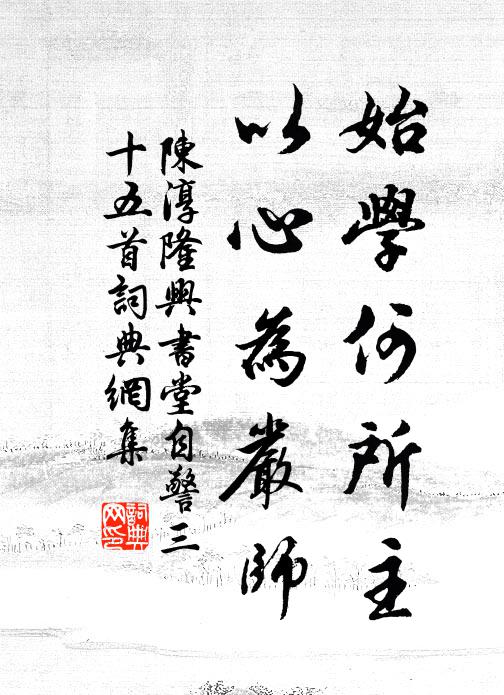 始學何所主
以心為嚴師
陳淳隆興書堂自警三
十五首詞典網集
詞典
网印